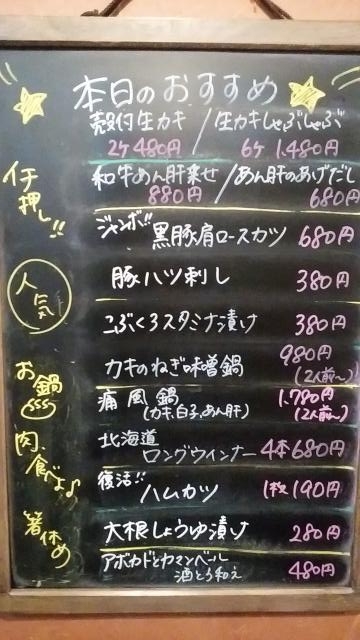 本日のおすすめ
殻付生カキ / 生カキしゃぶしゃぶ
2ケ 480円 6ケ 1,480円
和牛めん肝乗せ / あん肝のあげだし
880円 680円
イチ押し!!
ジャンボ!! 黒豚肩ロースカツ 680円
人気
豚ハツ刺し 380円
こぶくろスタミナ漬け 380円
お鍋
カキのねぎ味噌鍋 980円
(2人前〜)
痛風鍋 1,780円
(カキ、白子、あん肝) (2人前〜)
肉、食べよ♪
北海道
ロングウインナー 4本 680円
復活!!
ハムカツ 1枚 190円
箸休め
大根しょうゆ漬け 280円
アボカドとカマンベール
酒とう和え 480円